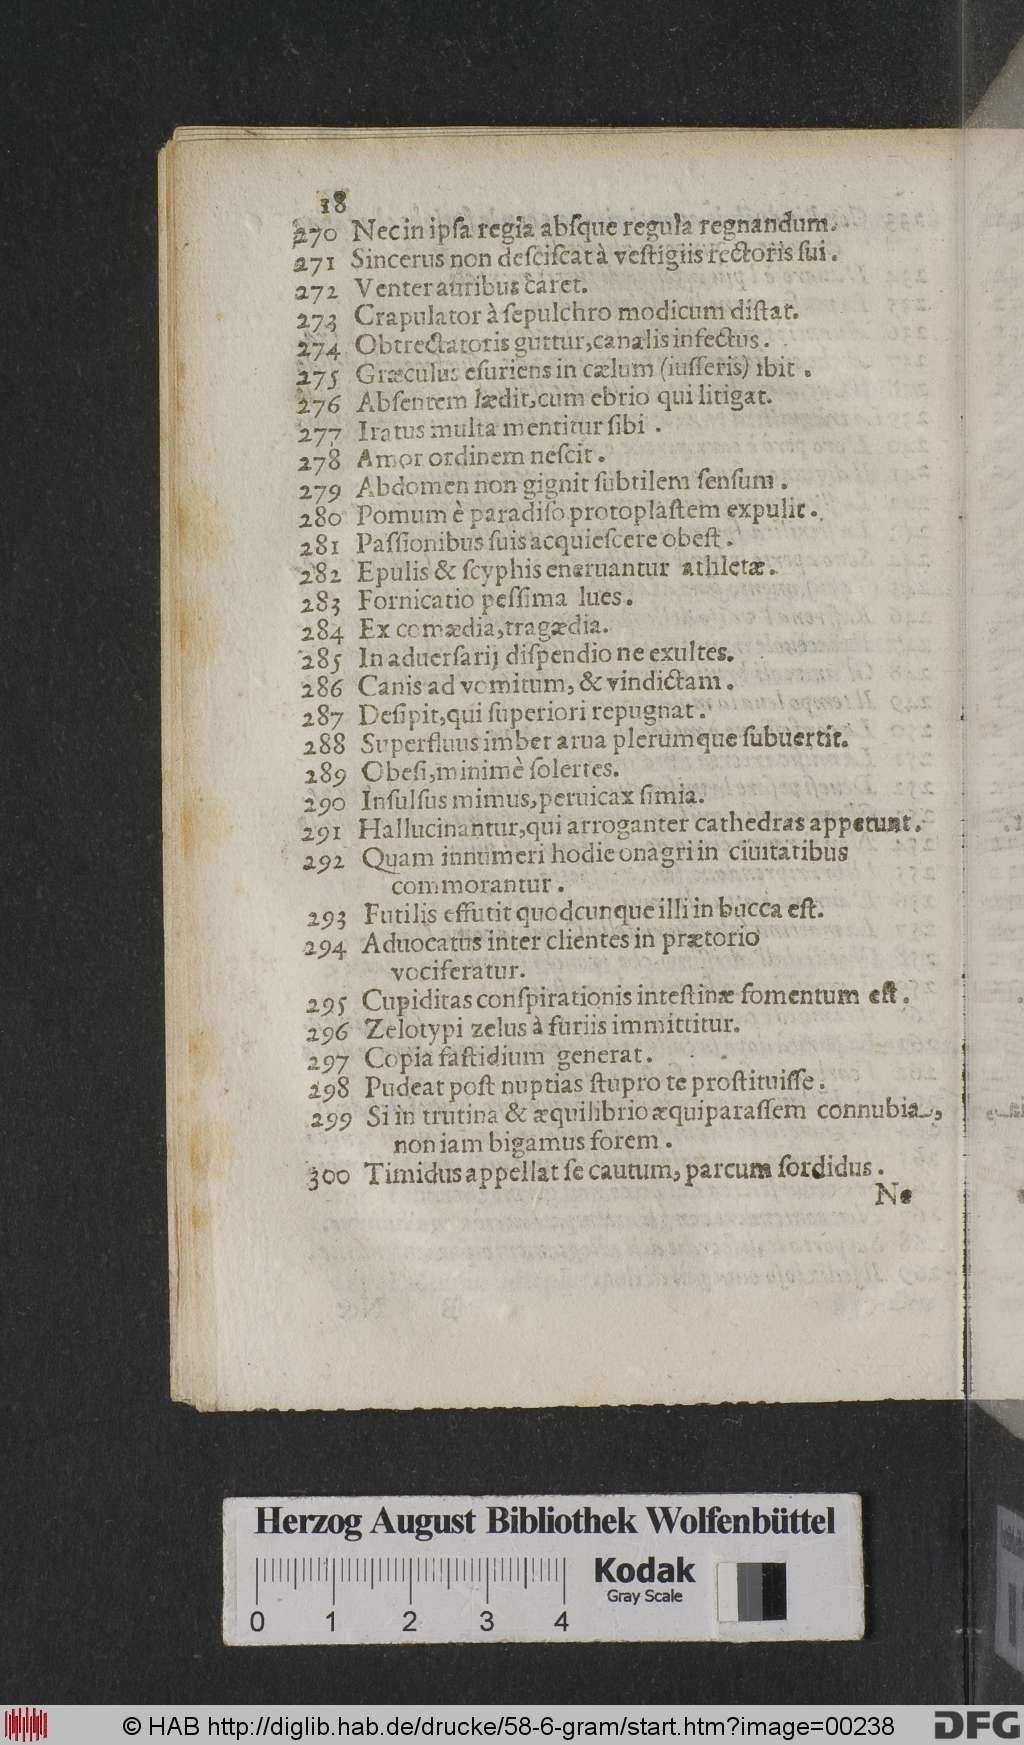 18
270 Nec in ipſa regia abſque regula regnandum.
271 Sincerus non deſciſcat à veſtigiis rectoris ſui.
272 Venter auribus caret.
273 Crapulator à ſepulchro modicum diſtat.
274 Obtrectatoris guttur, canalis infectus.
275 Græculus eſuriens in cælum (iuſſeris) ibit.
276 Abſentem lædit, cum ebrio qui litigat.
277 Iratus multa mentitur ſibi.
278 Amor ordinem neſcit.
279 Abdomen non gignit ſubtilem ſenſum.
280 Pomum è paradiſo protoplaſtem expulit.
281 Paſſionibus ſuis acquieſcere obeſt.
282 Epulis & ſcyphis eneruantur athletæ.
283 Fornicatio peſſima lues.
284 Ex comædia, tragædia.
285 In aduerſarij diſpendio ne exultes.
286 Canis ad vomitum, & vindictam.
287 Deſipit, qui ſuperiori repugnat.
288 Superfluus imber arua plerumque ſubuertit.
289 Obeſi, minimè ſolertes.
290 Inſulſus mimus, peruicax ſimia.
291 Hallucinantur, qui arroganter cathedras appetunt.
292 Quam innumeri hodie onagri in ciuitatibus
commorantur.
293 Futilis effutit quodcunque illi in bucca eſt.
294 Aduocatus inter clientes in prætorio
vociferatur.
295 Cupiditas conſpirationis inteſtinæ fomentum eſt.
296 Zelotypi zelus à furiis immittitur.
297 Copia faſtidium generat.
298 Pudeat poſt nuptias ſtupro te proſtituiſſe.
299 Si in trutina & æquilibrio æquiparaſſem connubia,
non iam bigamus forem.
300 Timidus appellat ſe cautum, parcum ſordidus.
Ne
Herzog August Bibliothek Wolfenbüttel
Kodak
Gray Scale
0 1 2 3 4
© HAB http://diglib.hab.de/drucke/58-6-gram/start.htm?image=00238
DFG